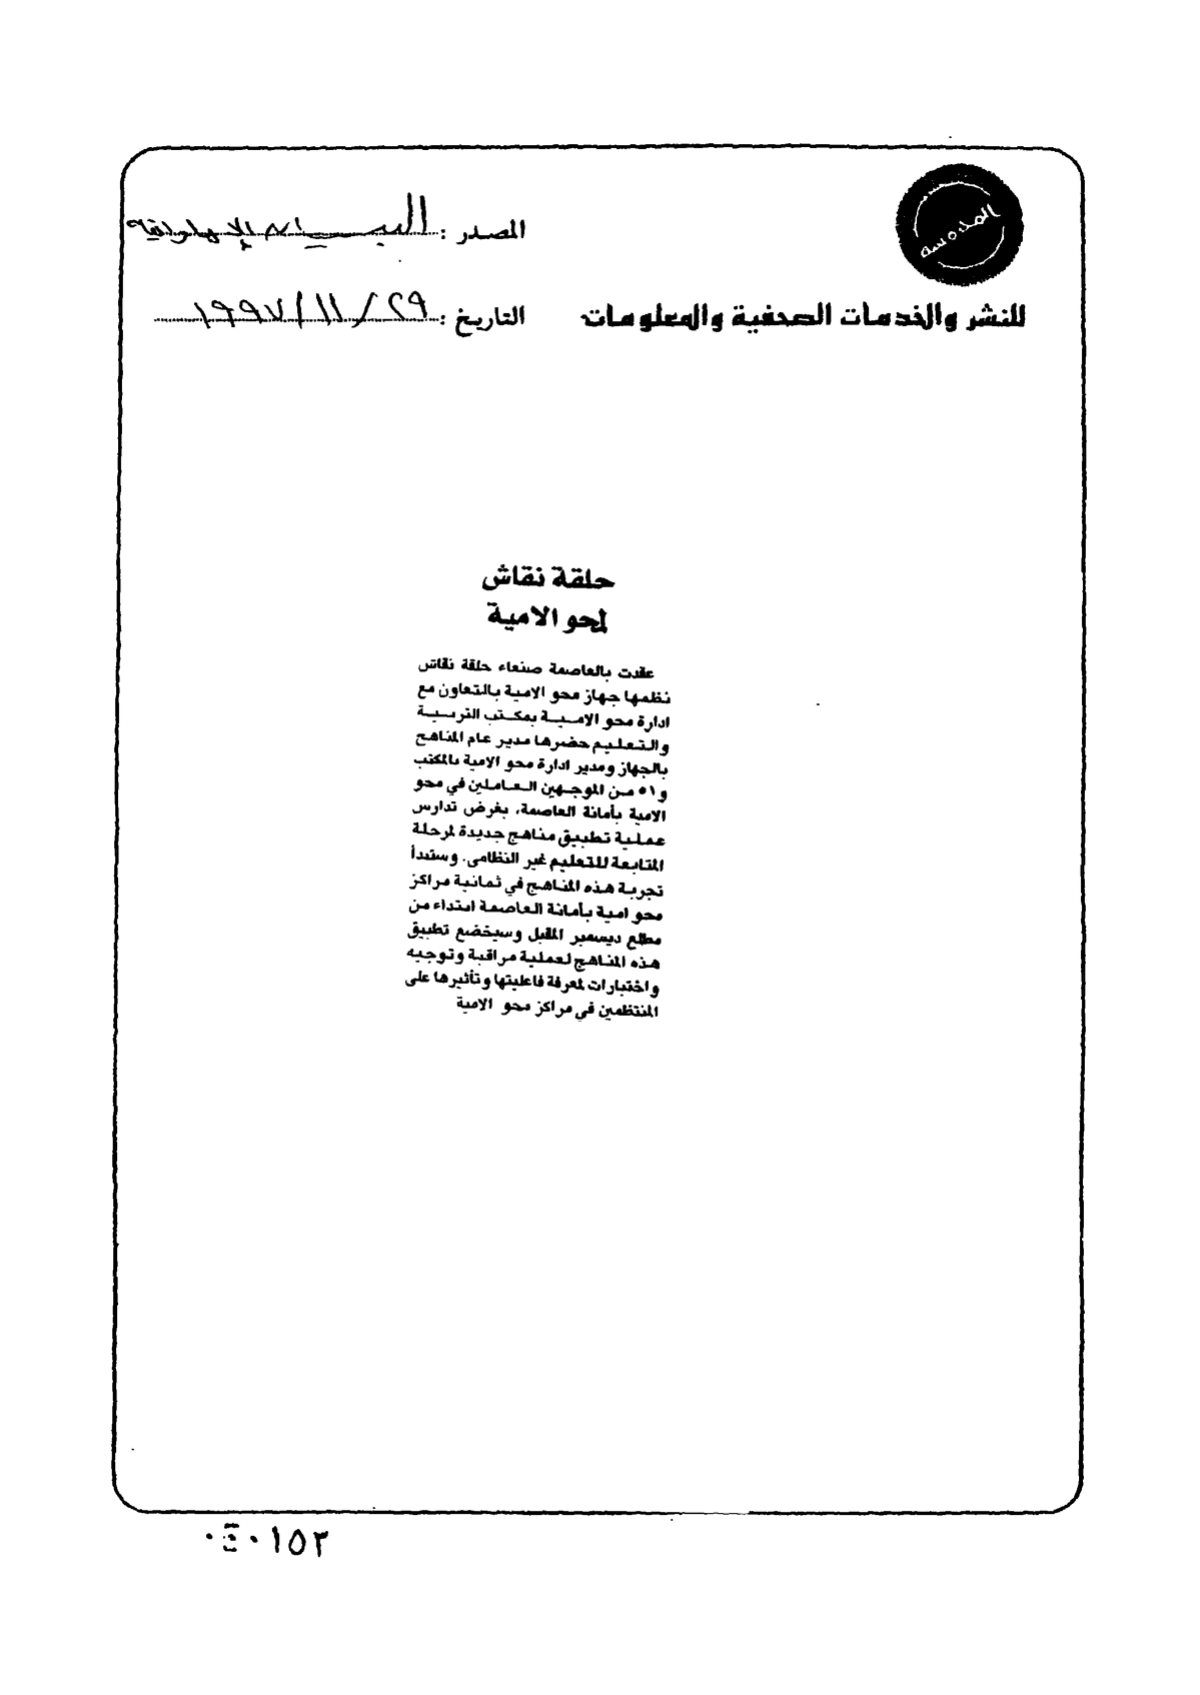 المدوسة
المصدر : البيان الإماراتية
للنشر والخدمات الصحفية والمعلومات
التاريخ : ٢٩ / ١١ / ١٩٩٧
حلقة نقاش
لمحو الامية
عقدت بالعاصمة صنعاء حلقة نقاش
نظمها جهاز محو الامية بالتعاون مع
ادارة محو الامية بمكتب التربية
والتعليم حضرها مدير عام المناهج
بالجهاز ومدير ادارة محو الامية بالمكتب
و٥١ من الموجهين العاملين في محو
الامية بأمانة العاصمة، بغرض تدارس
عملية تطبيق مناهج جديدة لمرحلة
المتابعة للتعليم غير النظامى. وستبدأ
تجربة هذه المناهج في ثمانية مراكز
محو امية بأمانة العاصمة ابتداء من
مطلع ديسمبر المقبل وسيخضع تطبيق
هذه المناهج لعملية مراقبة وتوجيه
واختبارات لمعرفة فاعليتها وتأثيرها على
المنتظمين في مراكز محو الامية